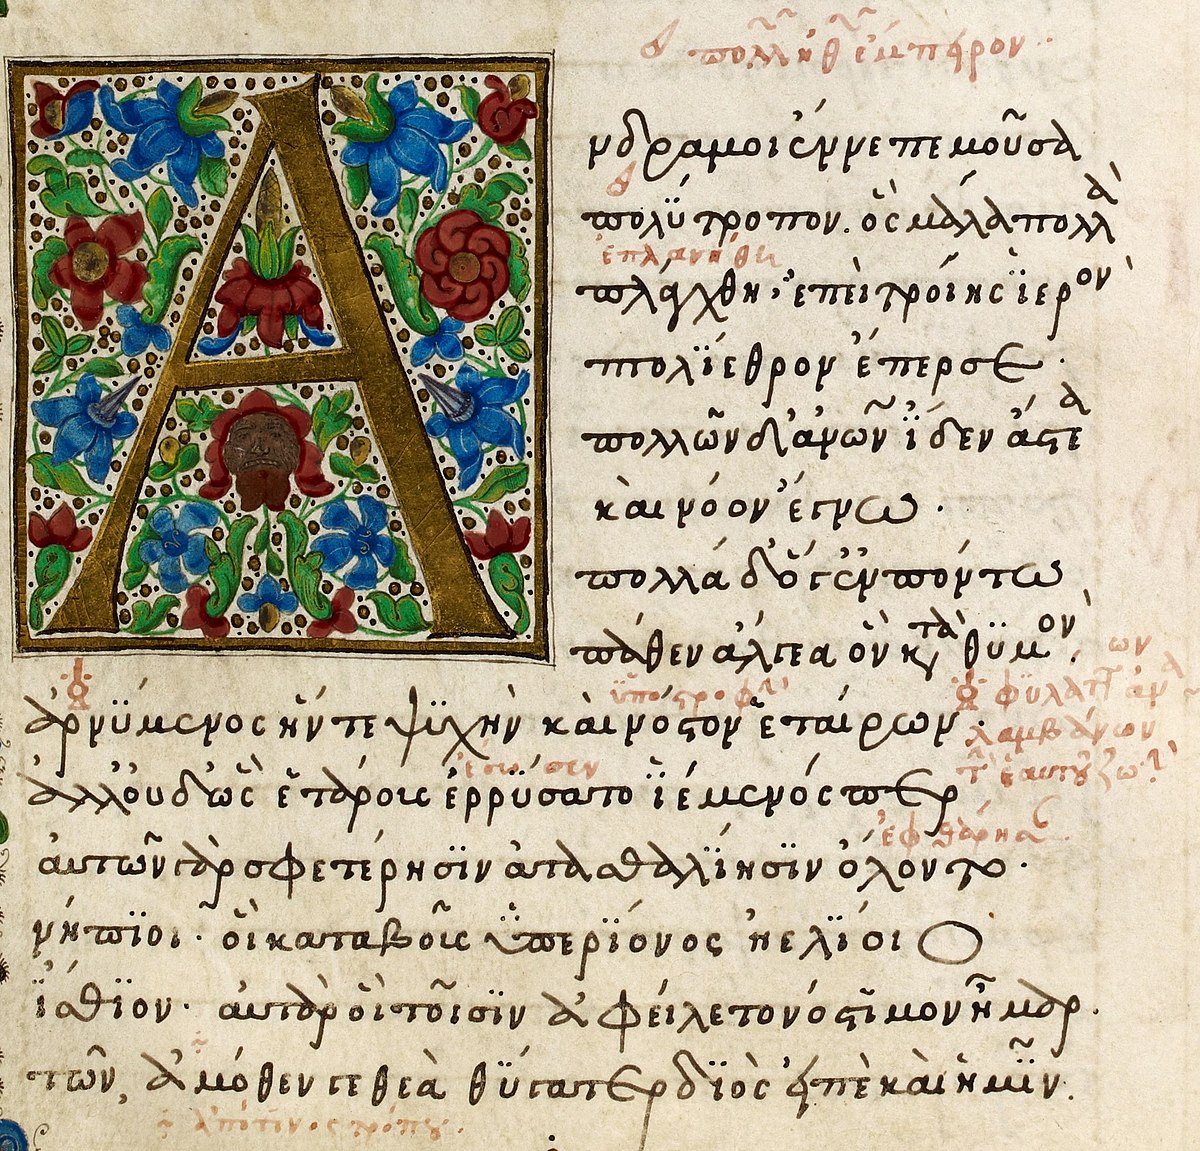 πολλ ἔμπειρον
Α
νδρα μοι ἔννεπε μοῦσα
πολύτροπον. ὃς μάλα πολλὰ
ἐπλανήθη
πλάγχθη, ἐπεὶ τροίης ϊερὸν
πτολΐεθρον ἔπερσε ·
πολλῶν δ' ἀνθρώπων ΐδεν ἄστεα
καὶ νόον ἔγνω ·
πολλὰ δ' ὅγ' ἐν πόντω
πάθεν ἄλγεα ὃν κατὰ θϋμὸν,
ὑποστροφὴν
ἀρνΰμενος ἥν τε ψϋχὴν καὶ νόστον ἑταίρων ·
φϋλάττων
λαμβάνων
ἔσωσεν
ἀλλ' οὐδ' ὣς ἑτάροις ἐρρΰσατο ϊέμενός περ
ἐφθάρησαν
αὐτῶν γὰρ σφετέρησϊν ἀτασθαλΐησϊν ὄλοντο ·
νήπϊοι · οἳ κατὰ βοῦς ὑπερΐονος ἠελΐοιο
ἤσθϊον · αὐτὰρ ὁ τοῖσϊν ἀφείλετο νόστϊμον ἦμαρ ·
τῶν, ἁμόθεν γε θεὰ θΰγατερ δϊὸς εἰπὲ καὶ ἡμῖν.
ἀπό τινος τρόπου.